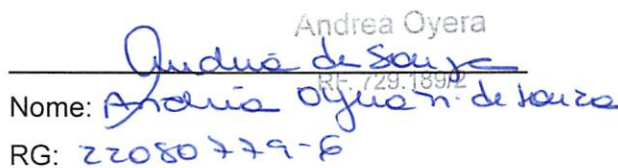 Andrea Oyera
Andréa de Souza
RF. 729.189/2
Nome: Andréa Oyera N. de Souza
RG: 22080779-6